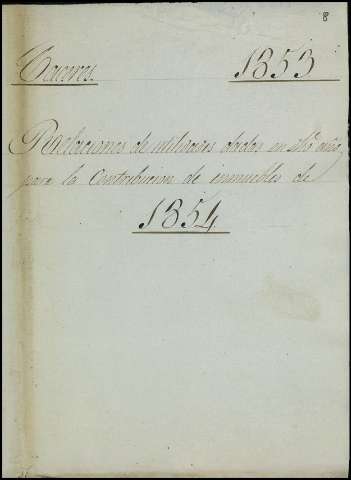 8
Caceres. 1853
Relaciones de utilidades dadas en dho año
para la Contribucion de inmuebles de
1854